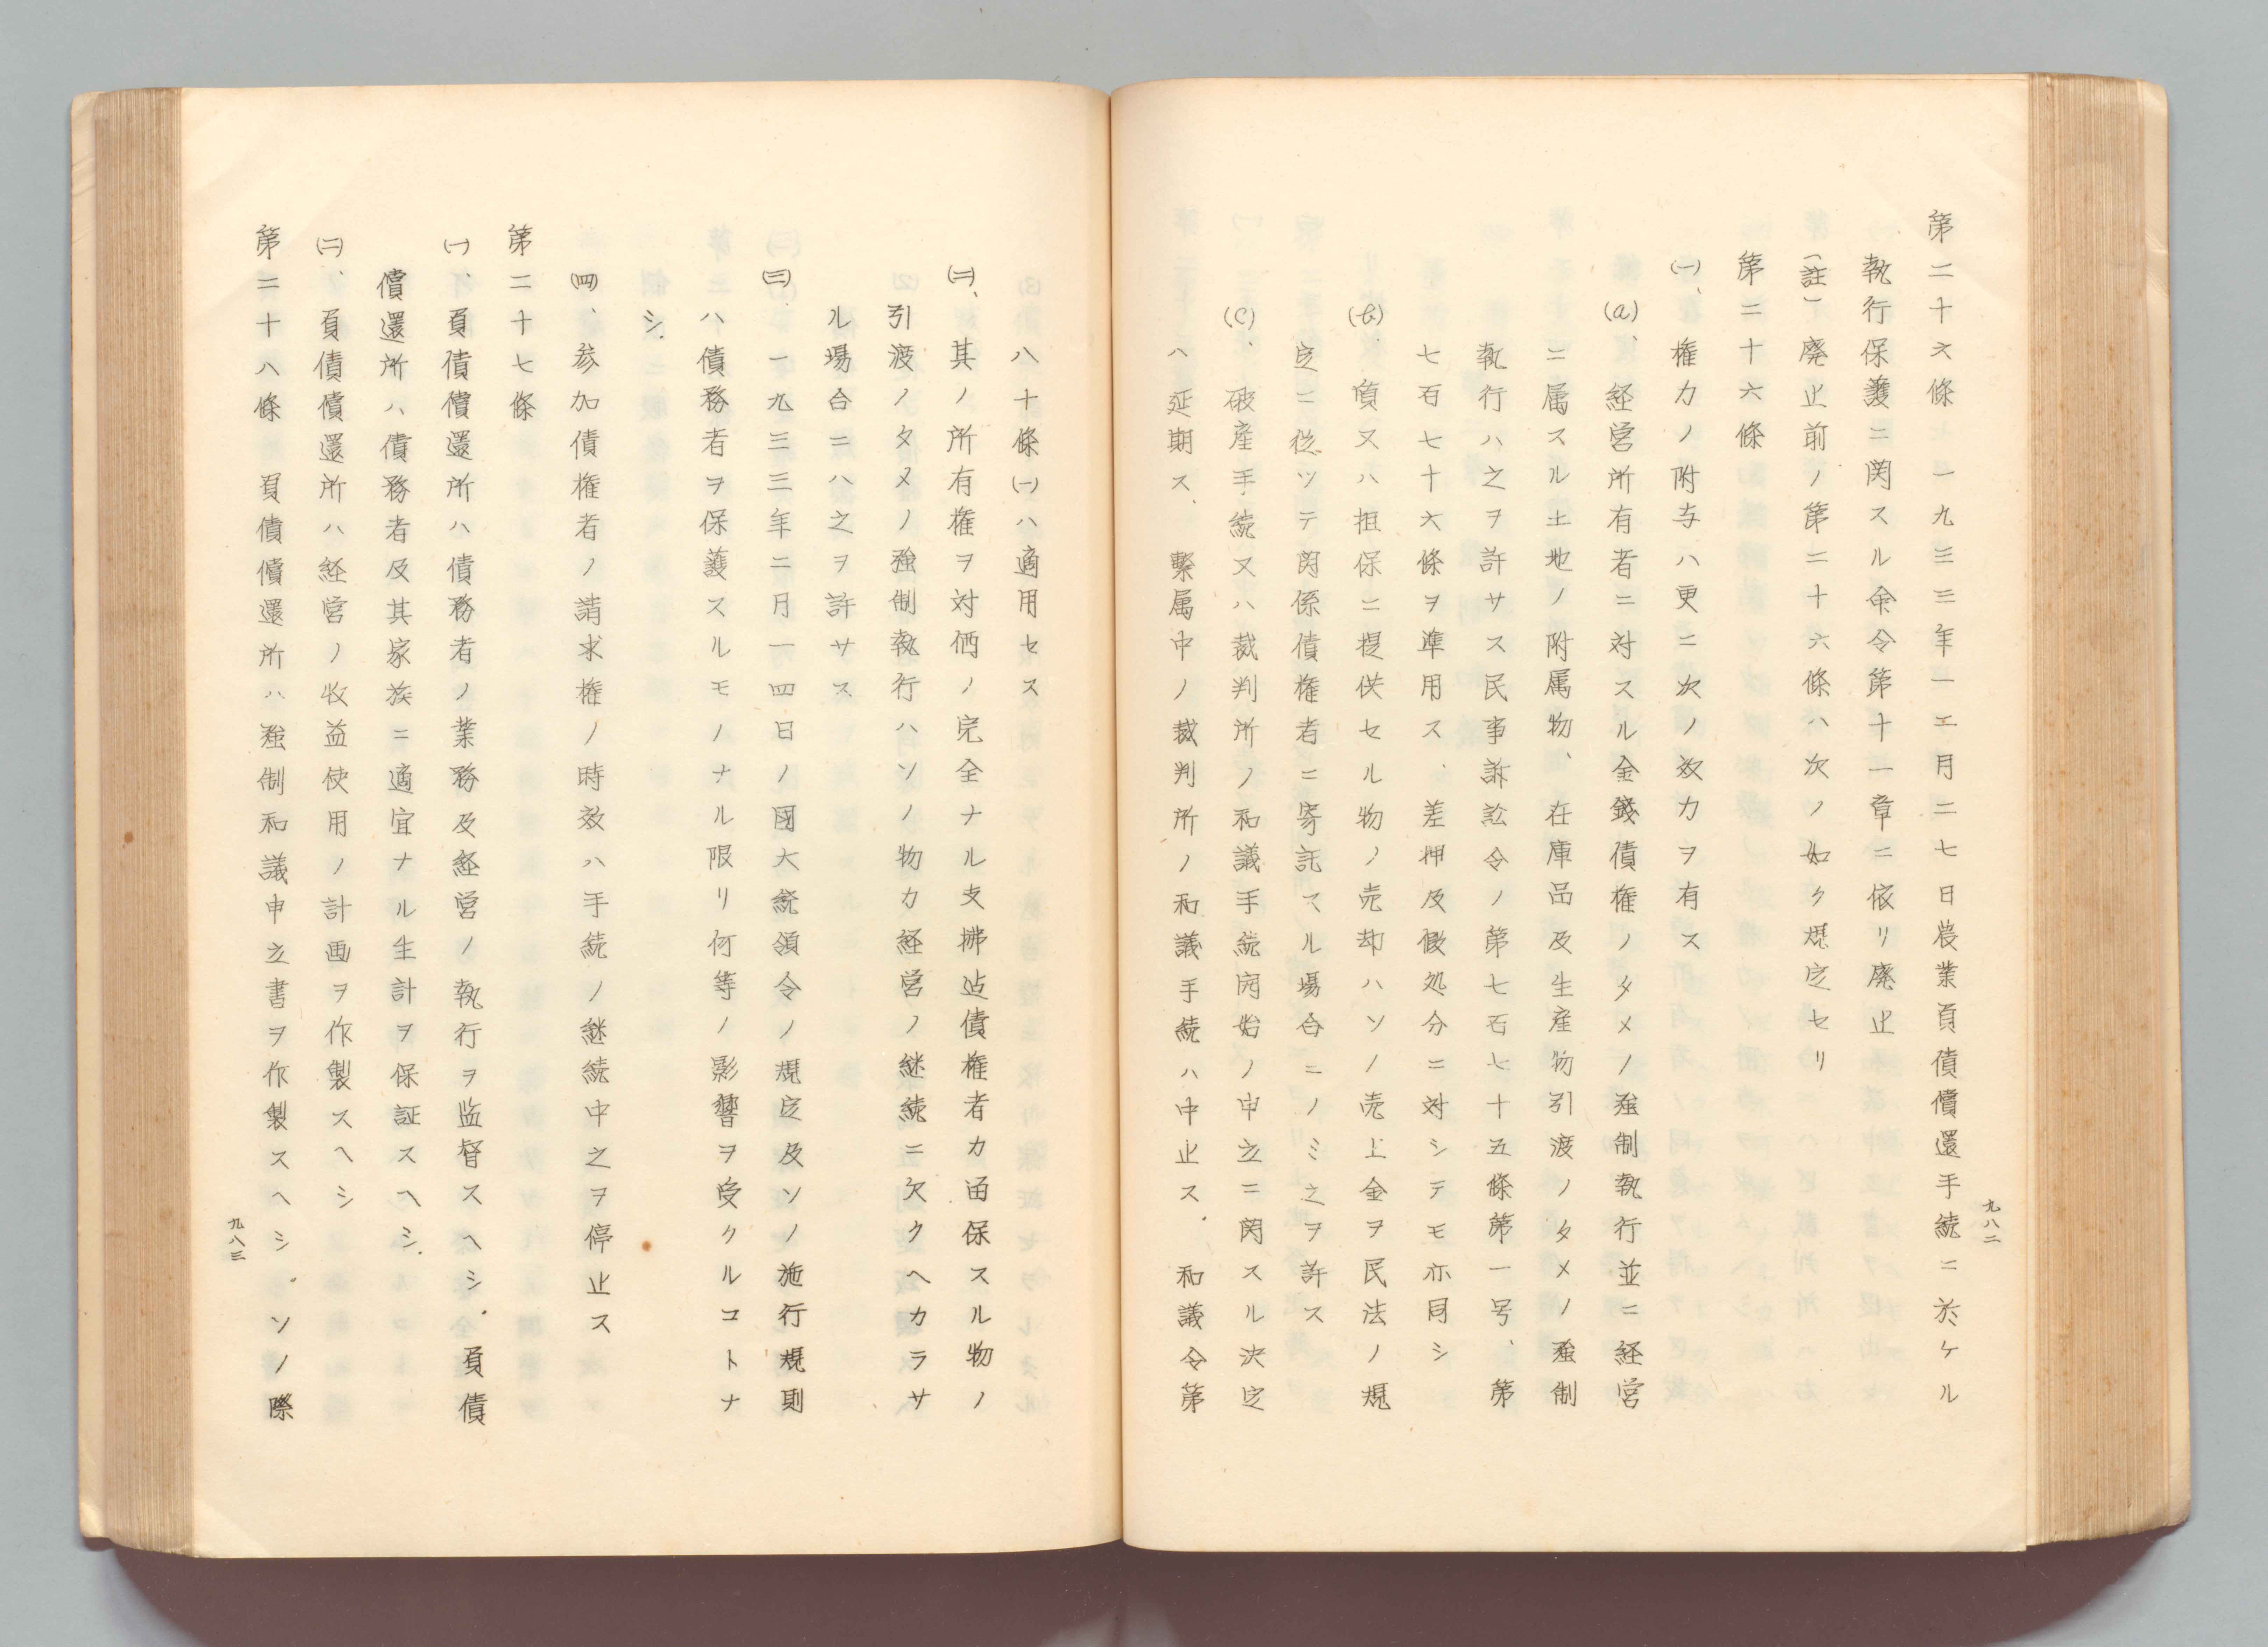 九八二
第二十六條　一九三三年一二月二七日農業負債償還手続ニ於ケル
執行保護ニ関スル命令第十一章ニ依リ廃止
（註）廃止前ノ第二十六條ハ次ノ如ク規定セリ
第二十六條
(一)、権力ノ附与ハ更ニ次ノ效力ヲ有ス
(a)、経営所有者ニ対スル金錢債権ノタメノ强制執行並ニ経営
ニ属スル土地ノ附属物、在庫品及生産物引渡ノタメノ强制
執行ハ之ヲ許サス民事訴訟令ノ第七百七十五條第一号、第
七百七十六條ヲ準用ス、差押及假処分ニ対シテモ亦同シ
(b)、質又ハ担保ニ提供セル物ノ売却ハソノ売上金ヲ民法ノ規
定ニ從ツテ関係債権者ニ寄託スル場合ニノミ之ヲ許ス
(c)、破産手続又ハ裁判所ノ和議手続開始ノ申立ニ関スル決定
ハ延期ス、繫属中ノ裁判所ノ和議手続ハ中止ス、和議令第
八十條(一)ハ適用セス
(二)、其ノ所有権ヲ対価ノ完全ナル支拂迠債権者カ留保スル物ノ
引渡ノタメノ强制執行ハソノ物カ経営ノ継続ニ欠クヘカラサ
ル場合ニハ之ヲ許サス
(三)、一九三三年二月一四日ノ國大統領令ノ規定及ソノ施行規則
ハ債務者ヲ保護スルモノナル限リ何等ノ影響ヲ受クルコトナ
シ、
(四)、参加債権者ノ請求権ノ時效ハ手続ノ継続中之ヲ停止ス
第二十七條
(一)、負債償還所ハ債務者ノ業務及経営ノ執行ヲ監督スヘシ、負債
償還所ハ債務者及其家族ニ適宜ナル生計ヲ保証スヘシ、
(二)、負債償還所ハ経営ノ收益使用ノ計画ヲ作製スヘシ
第二十八條　負債償還所ハ强制和議申立書ヲ作製スヘシ。ソノ際
九八三